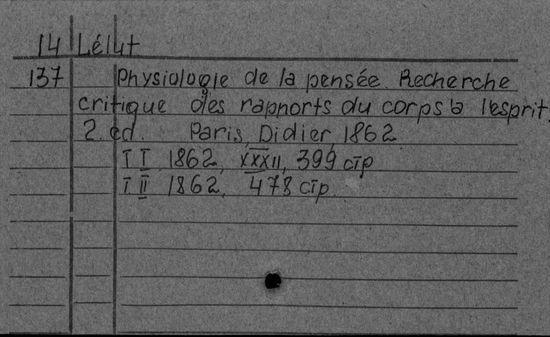 14 Lélut
137 Physiologie de la pensée. Recherche
critique des rapports du corps à l'esprit.
2. ed. Paris, Didier, 1862.
T I 1862, XXXII, 399 стр
T II 1862, 478 стр